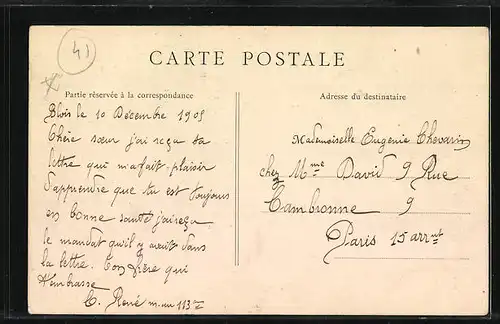 41
CARTE POSTALE
Partie réservée à la correspondance
Blois le 10 Décembre 1905
Chère sœur j'ai reçu ta
lettre qui m'a fait plaisir
d'apprendre que tu est toujours
en bonne santé j'ai reçu
le mandat qu'il y avait dans
la lettre. Ton frère qui
t'embrasse
C. René 113e
Adresse du destinataire
Mademoiselle Eugenie Chevarin
chez Mme David 9 Rue
Cambronne 9
Paris 15 arrnt